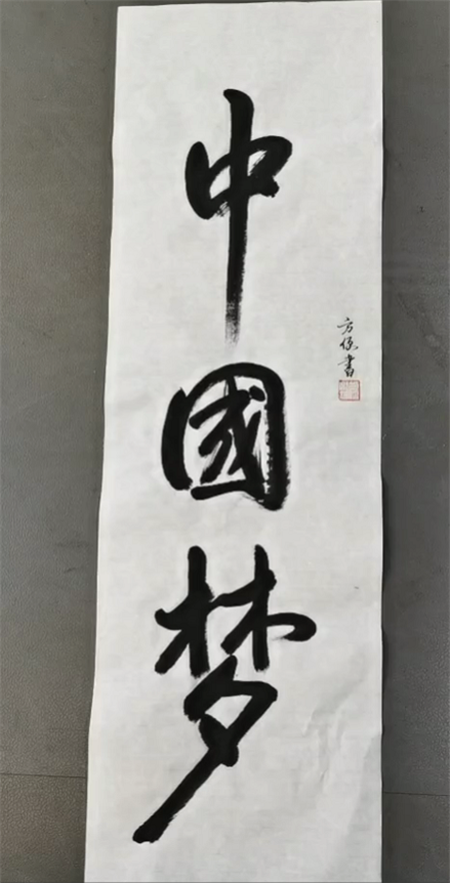 中國梦
方保書